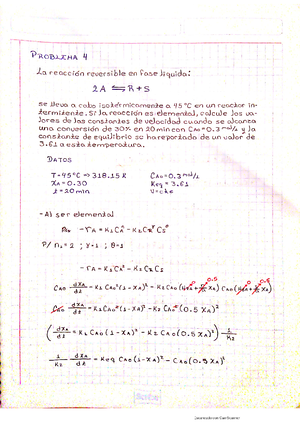 PROBLEMA 4
La reacción reversible en fase líquida:
2A ⇌ R + S
se lleva a cabo isotérmicamente a 45°C en un reactor in-
termitente. Si la reacción es elemental, calcule los va-
lores de las constantes de velocidad cuando se alcanza
una conversión de 30% en 20 min con CAo = 0.3 mol/L y la
constante de equilibrio se ha reportado de un valor de
3.61 a esta temperatura.
DATOS
T = 45°C ⇒ 318.15 K CAo = 0.3 mol/L
XA = 0.30 Keq = 3.61
t = 20 min V = cte
- Al ser elemental
-rA = K1CA² - K2CR CS
-rA = K1CA² - K2CRCS
CAo dXA/dt = K1CAo²(1-XA)² - K2CAo(0.5XA)²
(dXA/dt = K1CAo(1-XA)² - K2CAo(0.5XA)²) 1/K2
1/K2 dXA/dt = Keq CAo(1-XA)² - CAo(0.5XA)²
Scribe